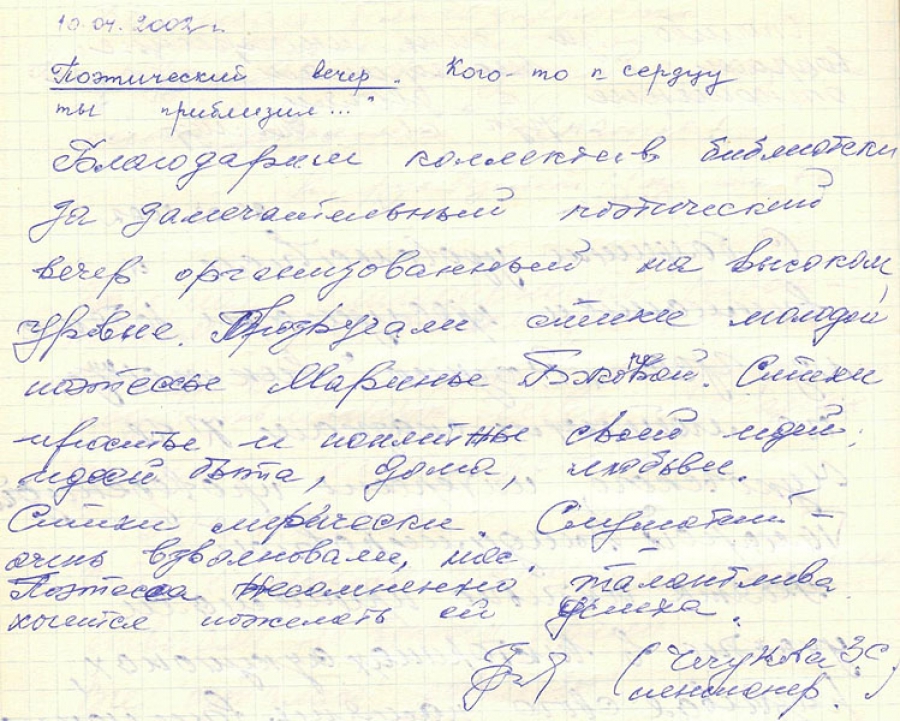 10.04.2002 г.
Поэтический вечер. Кого-то к сердцу
ты приблизил..."
Благодарим коллектив библиотеки
за замечательный поэтический
вечер организованный на высоком
уровне. Прозвучали стихи молодой
поэтессы Марины
Стихи
просты и понятны своей идеей,
идеей быта, дома, любви.
Стихи лирически.
очень взволновали, нас.
Поэтесса несомненно талантлива.
хочется пожелать ей успеха.
пенсионер.